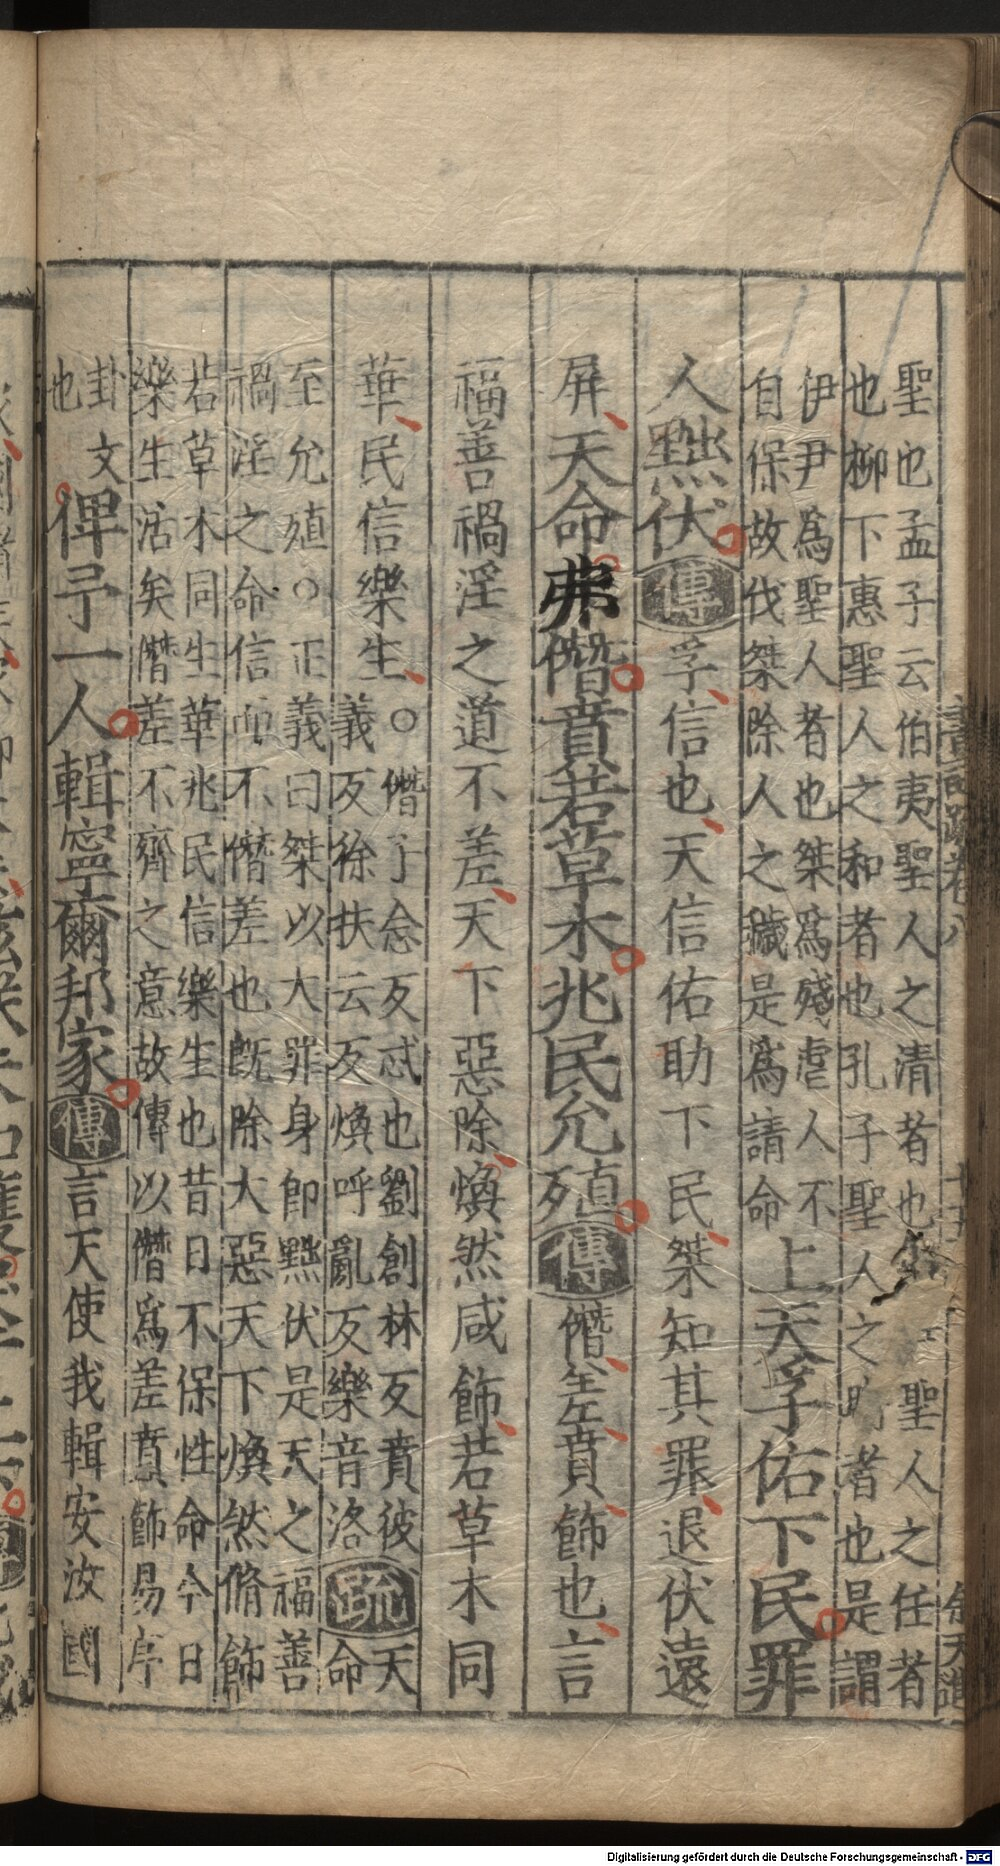 聖也孟子云伯夷聖人之清者也 聖人之任者
也柳下惠聖人之和者也孔子聖人之 者也是謂
伊尹爲聖人者也桀爲殘虐人不
自保故伐桀除人之穢是爲請命
上天孚佑下民罪
人黜伏傳孚信也天信佑助下民桀知其罪退伏遠
屏天命弗僭賁若草木兆民允殖傳僭差賁飾也言
福善禍淫之道不差天下惡除煥然咸飾若草木同
華民信樂生○
僭子念反忒也劉創林反賁彼
義反徐扶云反煥呼亂反樂音洛
疏
天
命
至允殖○正義曰桀以大罪身即黜伏是天之福善
禍淫之命信而不僭差也既除大惡天下煥然脩飾
若草木同生華兆民信樂生也昔日不保性命今日
樂生活矣僭差不齊之意故傳以僭爲差賁飾易序
卦文
也
俾予一人輯寧爾邦家傳言天使我輯安汝國
余天進
Digitalisierung gefördert durch die Deutsche Forschungsgemeinschaft - DFG